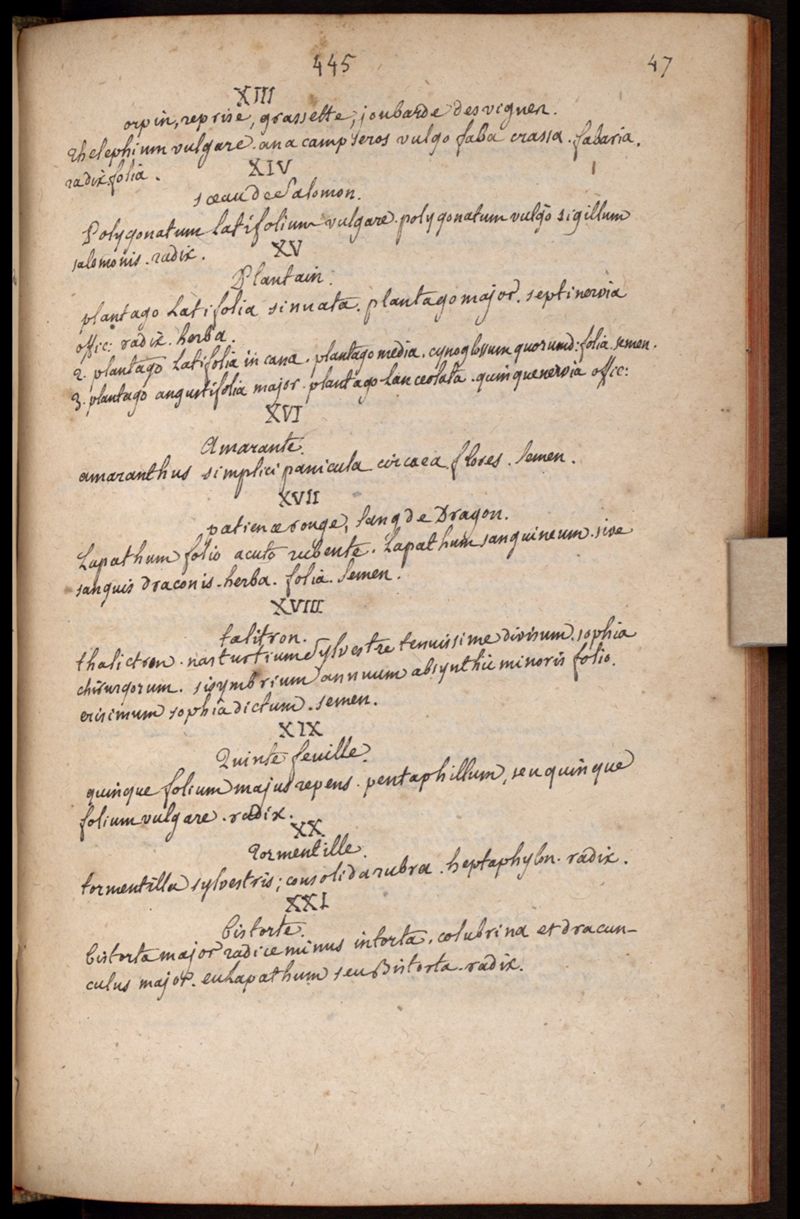 445
47
XIII
orpin, reprise, grassette, joubarde des vignes.
thelephium vulgare. anacampseros vulgo faba crassa. fabaria.
radix folia.
XIV
sceau de Salomon.
Polygonatum latifolium vulgare. polygonatum vulgo sigillum
salomonis. radix.
XV
Plantain.
plantago latifolia sinuata. plantago major. septinervia
offic: radix. herba.
2. plantago latifolia incana. plantago media. cynoglossum quorumd: folia. semen.
3. plantago angustifolia major. plantago lanceolata. quinquenervia offic:
XVI
Amarante.
amaranthus simplici panicula circaea flores. semen.
XVII
patience rouge, sang de Dragon.
Lapathum folio acuto rubente. Lapathum sanguineum. sive
sanguis draconis. herba. folia. semen.
XVIII
talitron.
thalictron. nasturtium sylvestre tenuissime divisum. sophia
chirurgorum. sisymbrium annuum absynthii minoris folio.
erisimum sophia dictum. semen.
XIX
Quinte feuille.
quinque folium majus repens. pentaphillum, seu quinque
folium vulgare. radix.
XX
Tormentille.
tormentilla sylvestris; consolida rubra. heptaphylon. radix.
XXI
bistorte.
bistorta major radice minus intorta. colubrina et dracun-
culus major. eulapathum seu Bistorta. radix.